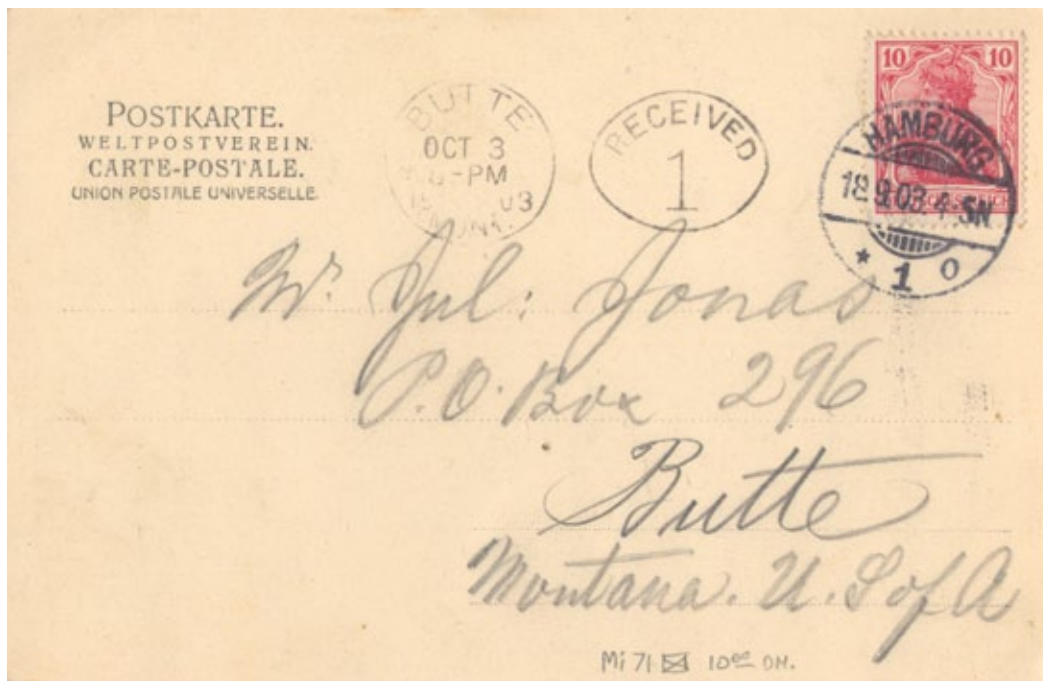 POSTKARTE.
WELTPOSTVEREIN.
CARTE-POSTALE.
UNION POSTALE UNIVERSELLE.
BUTTE
OCT 3
-PM
03
MONT.
RECEIVED
1
10 10
HAMBURG
18.9.03.4-5N
* 1 o
Mr. Jul: Jonas
P.O. Box 296
Butte
Montana. U. S of A
Mi 71 10 00 DM.